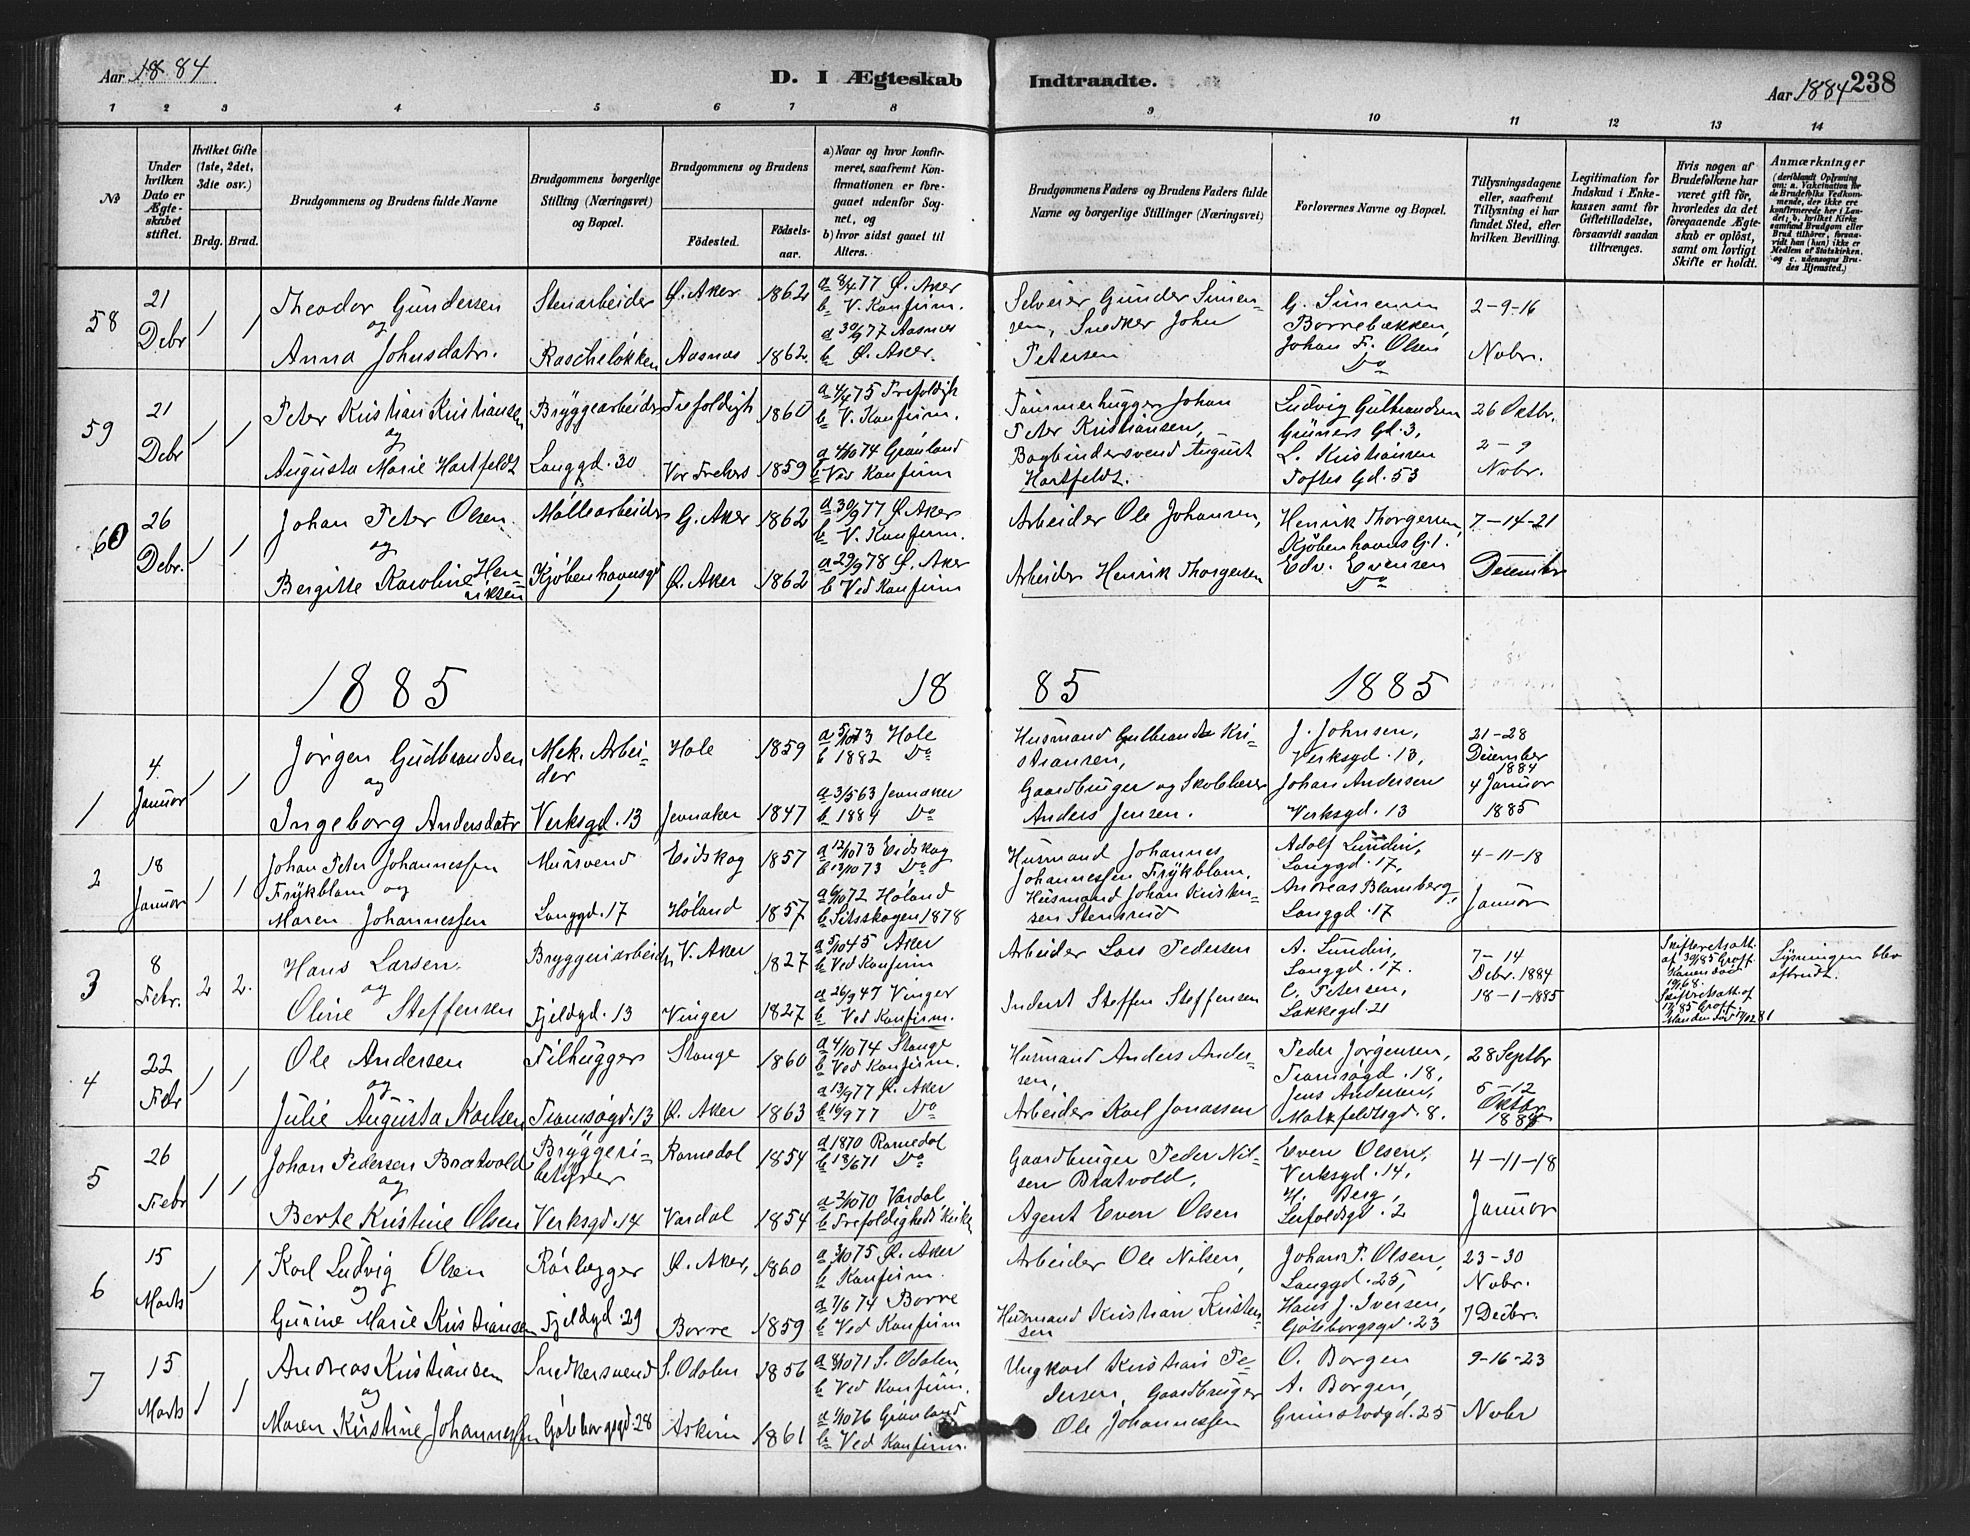 Aar 1884
D. I Ægteskab Indtraadte.
Aar 1884 238
1 2 3 4 5 6 7 8 9 10 11 12 13 14
No
Under hvilken Dato er Ægteskabet stiftet.
Hvilket Gifte (1ste, 2det, 3die osv.)
Brdg. Brud.
Brudgommens og Brudens fulde Navne
Brudgommens borgerlige Stilling (Næringsvei) og Bopæl.
Brudgommens og Brudens
Fødested. Fødselsaar.
a) Naar og hvor konfirmeret, saafremt Konfirmationen er foregaaet udenfor Sognet, og
b) hvor sidst gaaet til Alters.
Brudgommens Faders og Brudens Faders fulde Navne og borgerlige Stillinger (Næringsvei)
Forlovernes Navne og Bopæl.
Tillysningsdagene eller, saafremt Tillysning ei har fundet Sted, efter hvilken Bevilling.
Legitimation for Indskud i Enkekassen samt for Giftetilladelse, forsaavidt saadan tiltrænges.
Hvis nogen af Brudefolkene har været gift før, hvorledes da det foregaaende Ægteskab er opløst, samt om lovligt Skifte er holdt.
Anmærkninger (deriblandt Oplysning om: a. Vakcination for de Brudefolks Vedkommende, der ikke ere konfirmerede her i Landet; b. hvilket Kirkesamfund Brudgom eller Brud tilhører, forsaavidt han (hun) ikke er Medlem af Statskirken. og c. udensogns Brudes Hjemsted.)
58 21 Debr 1 1
Theodor Gundersen Stenarbeider Ø. Aker 1862 a 8/4 77 Ø. Aker b V. Konfirm.
og
Anna Johnsdatr. Rascheløkken Aasnes 1862. a 30/9 77 Aasnes b Ø. Aker.
Selveier Gunder Simensen, Snedker John Petersen
G. Simensen Borrebækken, Johan F. Olsen Do
2-9-16 Nobr.
59 21 Debr 1 1
Peter Kristian Kristiansen Bryggearbeider Trefoldigh 1860 a 4/4 75 Trefoldigh b V. Konfirm.
og
Augusta Marie Hartfeldt Langgd. 30 Vor Frelsers 1859 a 4/10 74 Grønland b Ved Konfirm
Tømmerhugger Johan Peter Kristiansen, Bogbindersvend August Hartfeldt.
Ludvig Gulbrandsen Grüners Gd. 3, L. Kristiansen Toftes Gd. 53
26 Oktbr. 2-9 Nobr.
60 26 Debr. 1 1
Johan Peter Olsen Møllearbeider G. Aker 1862 a 30/9 77 Ø. Aker b V. Konfirm.
og
Bergitte Karoline Henriksen Kjøbenhavnsgd 1 Ø. Aker 1862 a 29/9 78 Ø. Aker b Ved Konfirm
Arbeider Ole Johansen, Arbeider Henrik Thorgersen
Henrik Thorgersen, Kjøbenhavns G. 1. Edv. Evensen Do
7-14-21 December
1885 1885 1885
1 4 Januar 1 1
Jørgen Gudbrandsen Mek. Arbeider Hole 1859 a 5/10 73 Hole b 1882 Do
og
Ingeborg Andersdatr Verksgd. 13 Jevnaker 1847 a 3/5 63 Jevnaker b 1884 Do
Husmand Gulbrands Kristiansen, Gaardbruger og Skolelærer Anders Jensen.
J. Johnsen, Verksgd. 13, Johan Andersen Verksgd. 13
21-28 December 1884 4 Januar 1885
2 18 Januar 1 1
Johan Peter Johannessen Frykblom og Mursvend Eidskog 1857 a 12/10 73 Eidskog b 13/10 73 Do
Maren Johannessen Langgd. 17 Høland 1857 a 6/10 72 Høland b Sitsskogen 1878
Husmand Johannes Johannessen Frykblom. Husmand Johan Kristensen Stensrud
Adolf Lundin, Langgd. 17, Andreas Blomberg, Langgd. 17
4-11-18 Januar
3 8 Febr. 2 2.
Hans Larsen Bryggeriarbeider V. Aker 1827 a 5/10 45 Aker b Ved Konfirm
og
Oline Steffensen Fjeldgd. 13 Vinger 1827 a 26/9 47 Vinger b Ved Konfirm.
Arbeider Lars Pedersen Inderst Steffen Steffensen
A. Lundin, Langgd. 17. C. Petersen, Lakkegd. 21
7-14 Debr. 1884 18-1-1885
Skifteretsatt. af
Lysningen blev afbrudt.
4 22 Febr 1 1
Ole Andersen Filhugger Stange 1860 a 4/10 74 Stange b Ved Konfirm.
og
Julie Augusta Karlsen Tromsøgd. 13 Ø. Aker 1863 a 13/9 77 Ø. Aker b 16/9 77 Do
Husmand Anders Andersen, Arbeider Karl Jonassen
Peder Jørgensen, Tromsøgd. 18, Jens Andersen, Motzfeldtsgd. 8.
28 Septbr 5-12 Oktbr 1884
5 26 Febr 1 1
Johan Pedersen Bratvold Bryggeribetyrer Romedal 1854 a 1870 Romedal b 18/6 71 Do
og
Berte Kristine Olsen Verksgd. 14 Vardal 1854 a 2/10 70 Vardal b Trefoldigheds Kirke
Gaardbruger Peder Nilsen Bratvold, Agent Even Olsen
Even Olsen, Verksgd. 14, H. Berg, Leirfaldsgd. 2
4-11-18 Januar
6 15 Marts 1 1
Karl Ludvig Olsen Rørlægger Ø. Aker, 1860 a 3/10 75 Ø. Aker b Konfirm.
og
Gurine Marie Kristiansen Fjeldgd. 29 Borre 1859 a 7/6 74 Borre b Ved Konfirm
Arbeider Ole Nilsen, Husmand Kristian Kristensen
Johan F. Olsen, Langgd. 25, Hans J. Iversen, Gøteborgsgd. 23
23-30 Nobr. 7 Decbr.
7 15 Marts 1 1
Andreas Kristiansen Snedkersvend S. Odalen 1856 a 8/10 71 S. Odalen, b Ved Konfirm.
og
Maren Kristine Johannessen Gøteborgsgd. 28 Askim 1861 a 1/10 76 Grønland b Ved Konfirm.
Ungkarl Kristian Pedersen, Gaardbruger Ole Johannessen
O. Borgen A. Borgen, Grimstadgd. 25
9-16-23 Nobr